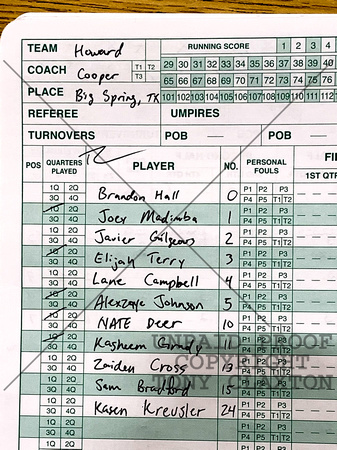 TEAM Howard RUNNING SCORE 1 2 3 4
COACH Cooper T1 T2 T3 29 30 31 32 33 34 35 36 37 38 39 40
65 66 67 68 69 70 71 72 73 74 75 76
PLACE Big Spring, TX 101 102 103 104 105 106 107 108 109 110 111 112
REFEREE UMPIRES
TURNOVERS POB — POB —
POS QUARTERS PLAYED PLAYER NO. PERSONAL FOULS 1ST QTR
1Q 2Q 3Q 4Q Brandon Hall 0 P1 P2 P3 P4 P5 T1 T2
1Q 2Q 3Q 4Q Joey Madimba 1 P1 P2 P3 P4 P5 T1 T2
1Q 2Q 3Q 4Q Javier 2 P1 P2 P3 P4 P5 T1 T2
1Q 2Q 3Q 4Q Elijah Terry 3 P1 P2 P3 P4 P5 T1 T2
1Q 2Q 3Q 4Q Lane Campbell 4 P1 P2 P3 P4 P5 T1 T2
1Q 2Q 3Q 4Q Johnson 5 P1 P2 P3 P4 P5 T1 T2
1Q 2Q 3Q 4Q NATE Deer 10 P1 P2 P3 P4 P5 T1 T2
1Q 2Q 3Q 4Q Kasheem Grady 11 P1 P2 P3 P4 P5 T1 T2
PROOF
COPYRIGHT
1Q 2Q 3Q 4Q Zaiden Cross 13 P1 P2 P3 P4 P5 T1 T2
1Q 2Q 3Q 4Q Sam Bradford 15 P1 P2 P3 P4 P5 T1 T2
1Q 2Q 3Q 4Q Kasen Kreusler 24 P1 P2 P3 P4 P5 T1 T2
1Q 2Q 3Q 4Q P1 P2 P3 P4 P5 T1 T2